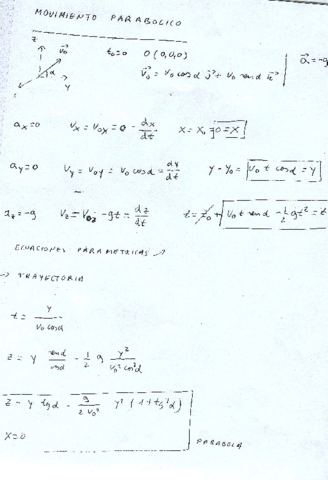 MOVIMIENTO PARABOLICO
z v⃗₀ t₀=0 0(0,0,0) a⃗=-g
α y v⃗₀ = v₀ cosα j⃗ + v₀ senα k⃗
ax=0 Vx=V0x=0=dx/dt x=x₀ 0=x
ay=0 Vy=V0y=V0 cosα=dy/dt y-y₀=V0 t cosα=y
az=-g Vz=V0z-gt=dz/dt z=z₀+V0 t senα-1/2 gt²=z
ECUACIONES PARAMETRICAS ↗
→ TRAYECTORIA
t = y/(V0 cosα)
z = y senα/cosα - 1/2 g y²/(V0² cos²α)
z = y tgα - g/(2 V0²) y² (1+tg²α)
x=0
PARABOLA